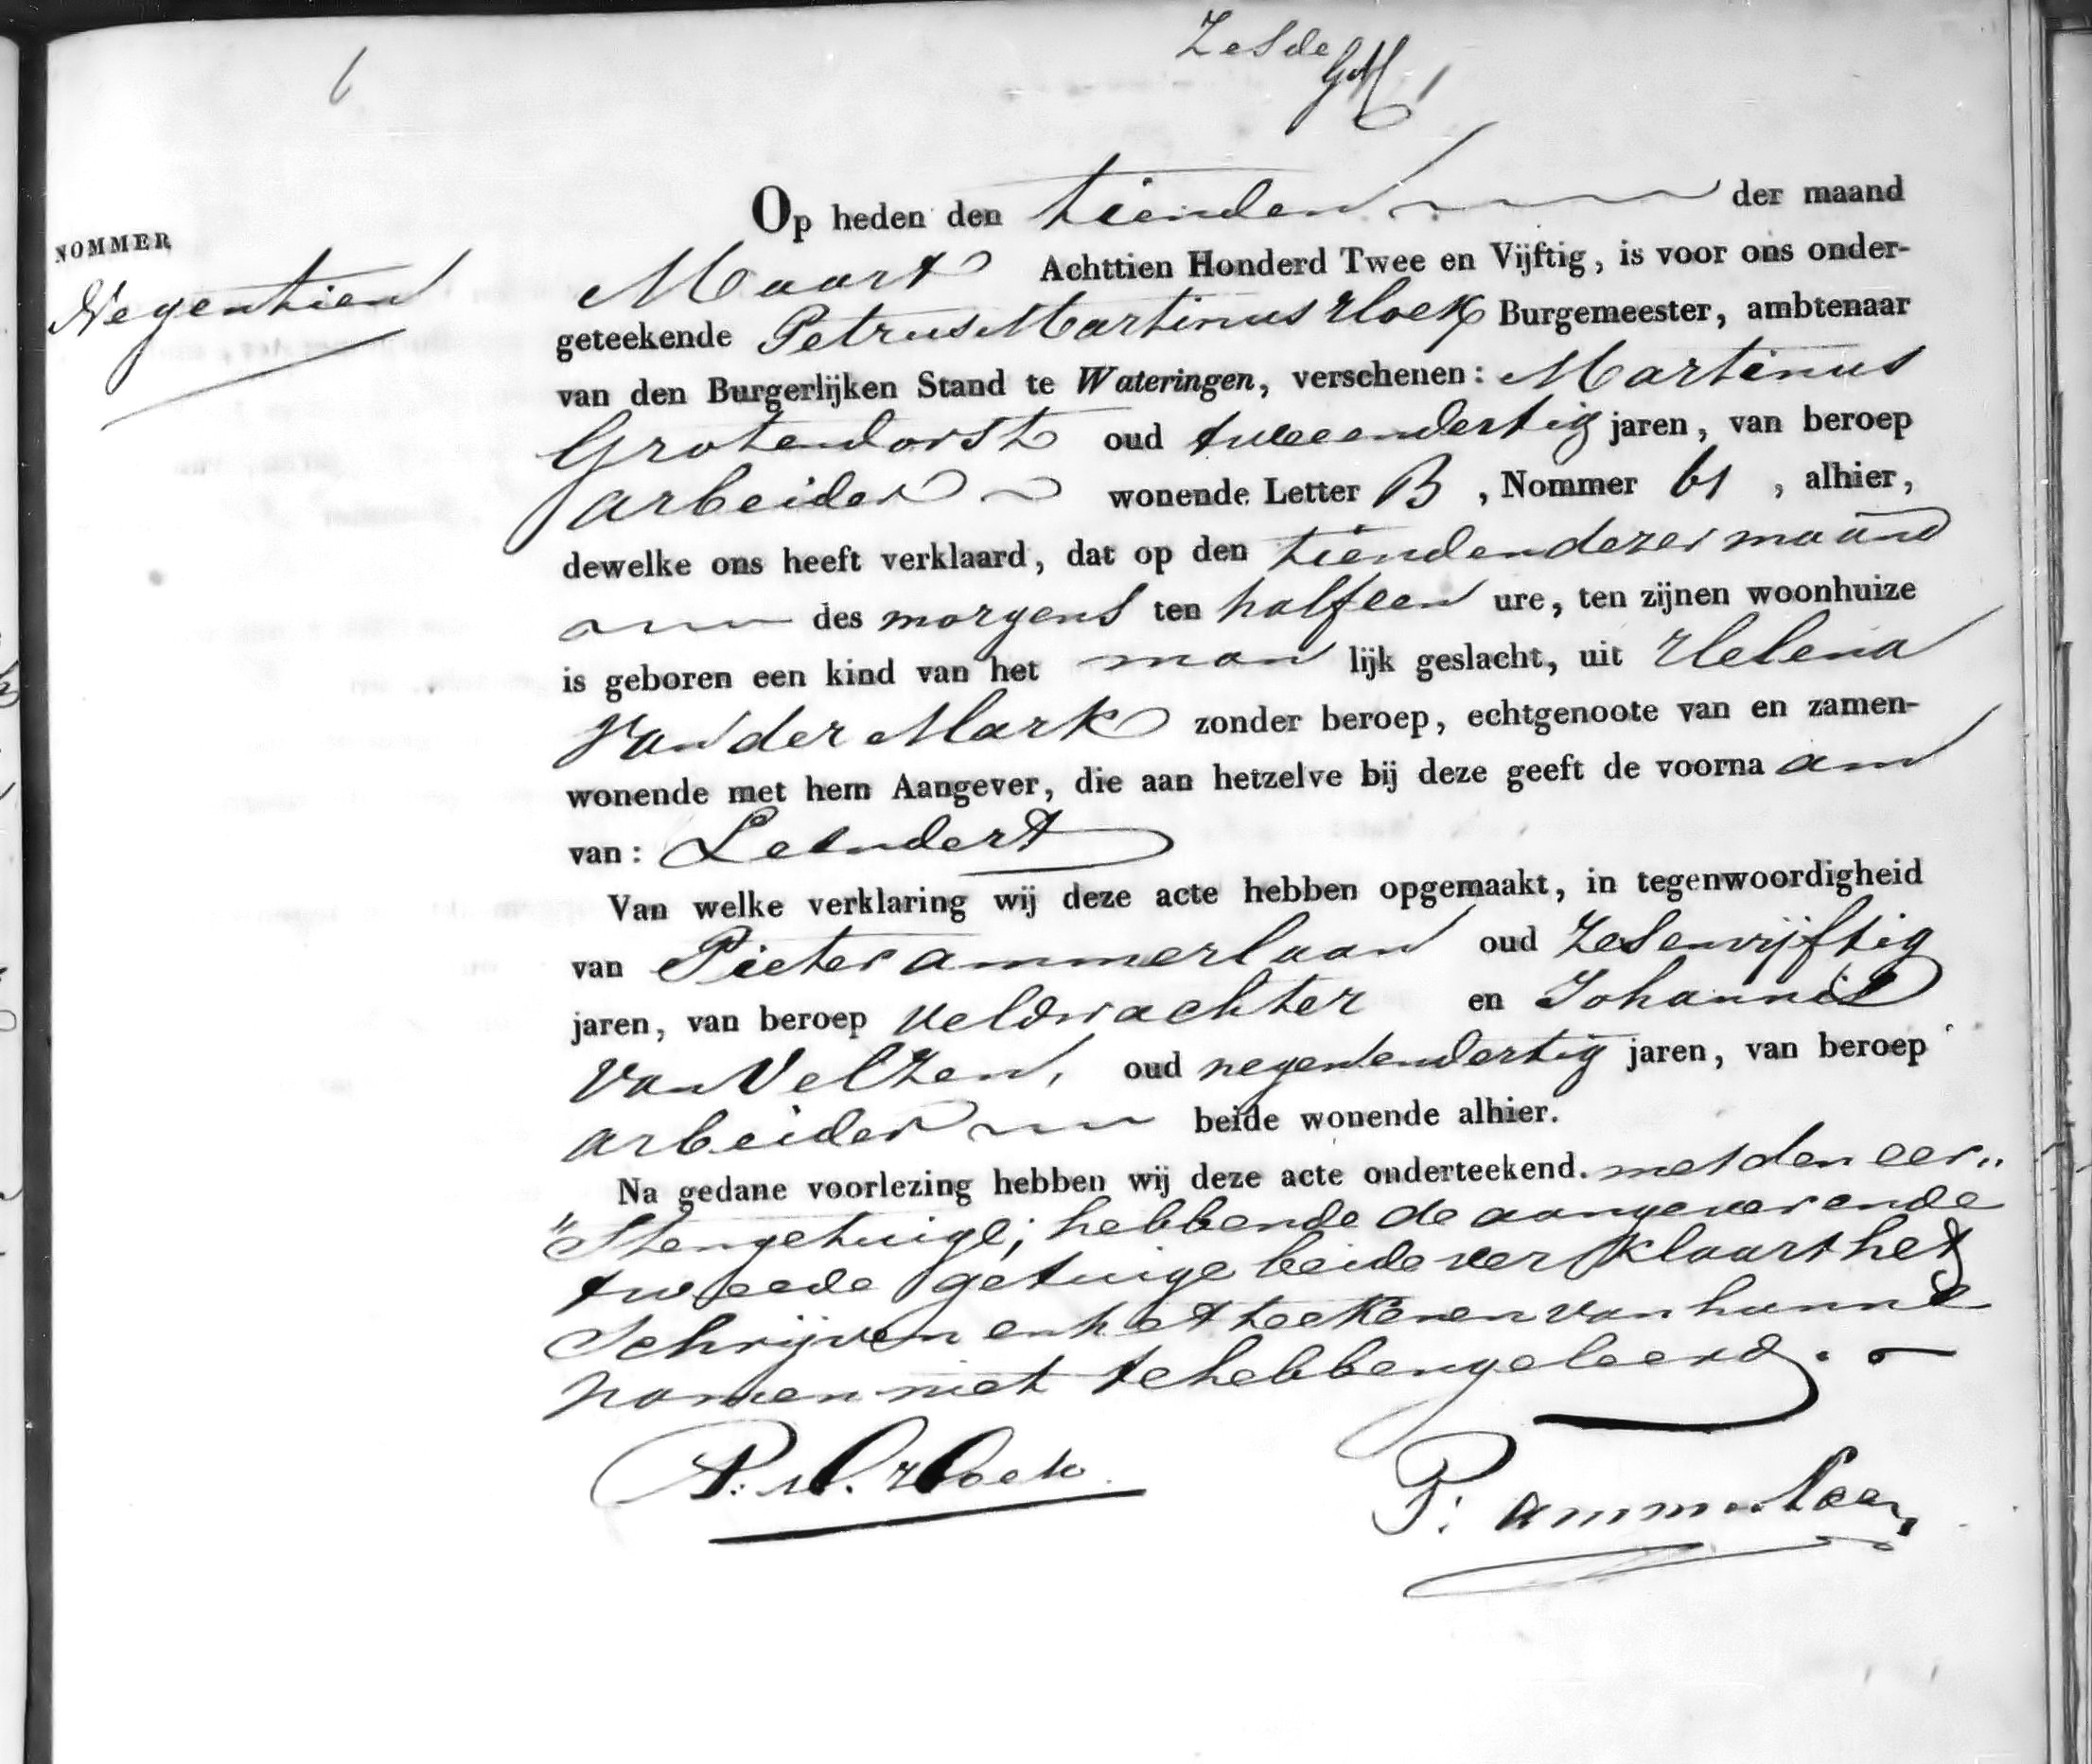 6
Zesde
NOMMER
Negentien
Op heden den tienden der maand
Maart Achttien Honderd Twee en Vijftig, is voor ons onder-
geteekende Petrus Martinus Hoek Burgemeester, ambtenaar
van den Burgerlijken Stand te Wateringen, verschenen: Martinus
Grotendorst oud tweeendertig jaren, van beroep
arbeider wonende Letter B, Nommer 61, alhier,
dewelke ons heeft verklaard, dat op den tienden dezer maand
des morgens ten half een ure, ten zijnen woonhuize
is geboren een kind van het man lijk geslacht, uit Helena
van der Mark zonder beroep, echtgenoote van en zamen-
wonende met hem Aangever, die aan hetzelve bij deze geeft de voorna am
van: Leendert
Van welke verklaring wij deze acte hebben opgemaakt, in tegenwoordigheid
van Pieter ammerlaan oud Zesenvijftig
jaren, van beroep veldwachter en Johannes
van Velzen, oud negenendertig jaren, van beroep
arbeider beide wonende alhier.
Na gedane voorlezing hebben wij deze acte onderteekend. met den eer„
„sten getuige; hebbende de aangever en de
tweede getuige beide verklaart het
schrijven en het teekenen van hunne
namen niet te hebben geleerd.
P: M. Hoek
P: ammerlaan